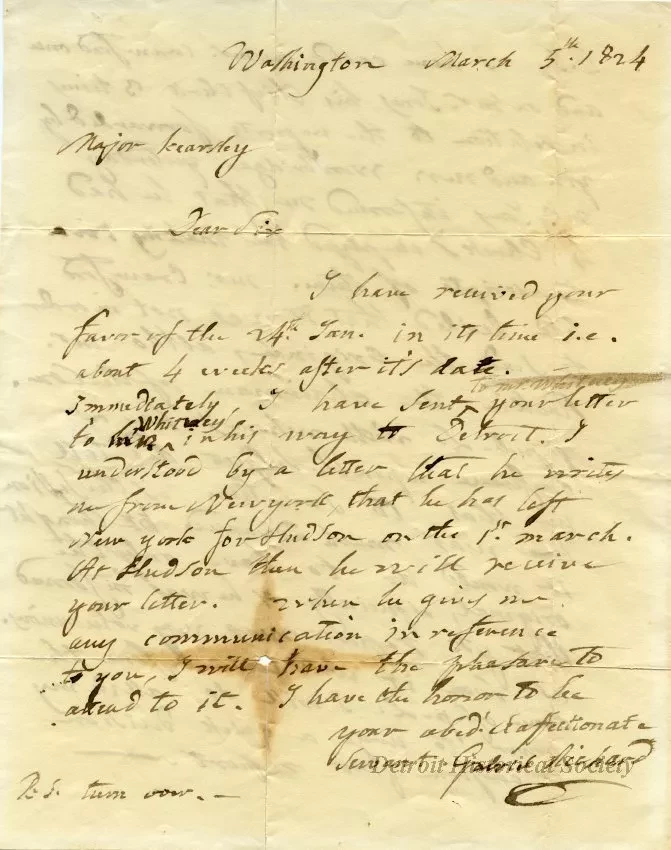 Washington March 5th. 1824
Major Kearsley
Dear Sir
I have received your
favor of the 24th. Jan. in its time i.e.
about 4 weeks after it's date.
to mr. Whitney
Immediately, I have sent ^ your letter
Whitney,
to him ^ in his way to Detroit. I
understood by a letter that he writes
me from Newyork, that he has left
New york for Hudson on the 1st. march.
At Hudson then he will receive
your letter. when he gives me
any communication in reference
to you, I will have the pleasure to
attend to it. I have the honor to be
your obed. & affectionate
servant Gabriel Richard
P.S. turn over. —
Detroit Historical Society